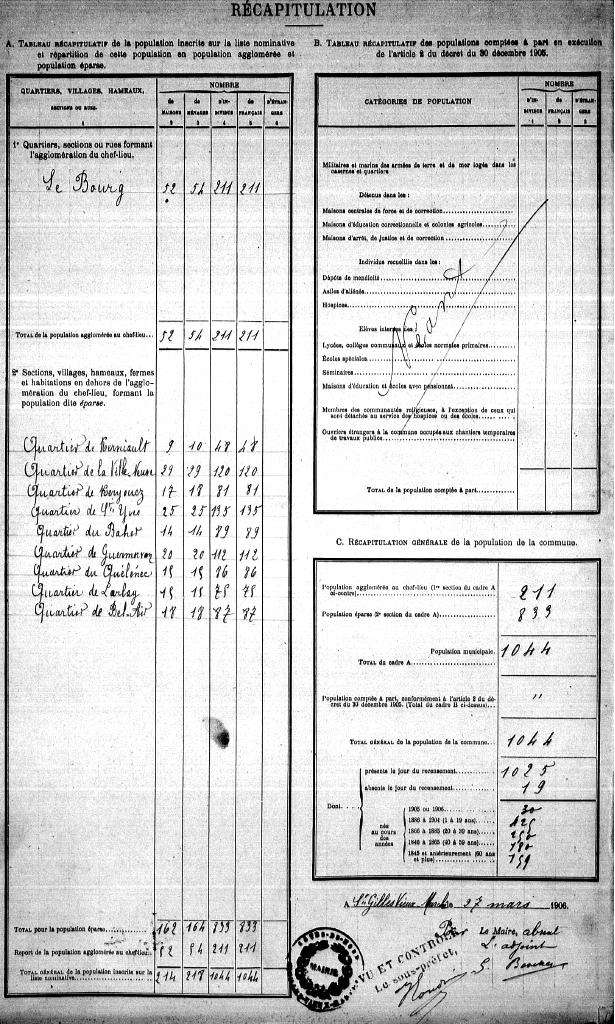 RÉCAPITULATION
A. TABLEAU RÉCAPITULATIF de la population inscrite sur la liste nominative
et répartition de cette population en population agglomérée et
population éparse.
QUARTIERS, VILLAGES, HAMEAUX,
SECTIONS OU RUES.
1
NOMBRE
de MAISONS 2
de MÉNAGES 3
d'INDIVIDUS 4
de FRANÇAIS 5
d'ÉTRANGERS 6
1° Quartiers, sections ou rues formant
l'agglomération du chef-lieu.
Le Bourg 52 54 211 211
TOTAL de la population agglomérée au chef-lieu... 52 54 211 211
2° Sections, villages, hameaux, fermes
et habitations en dehors de l'agglo-
mération du chef-lieu, formant la
population dite éparse.
Quartier de 9 10 48 48
Quartier de la Ville Neuve 29 29 120 120
Quartier de 17 18 81 81
Quartier de St Yves 25 25 135 135
Quartier du 14 14 89 89
Quartier de 20 20 112 112
Quartier du Quélénec 15 15 86 86
Quartier de 15 15 75 75
Quartier de Bel-Air 18 18 87 87
TOTAL pour la population éparse 162 164 833 833
Report de la population agglomérée au chef-lieu 52 54 211 211
TOTAL GÉNÉRAL de la population inscrite sur la
liste nominative 214 218 1044 1044
B. TABLEAU RÉCAPITULATIF des populations comptées à part en exécution
de l'article 2 du décret du 30 décembre 1905.
CATÉGORIES DE POPULATION
NOMBRE
d'INDIVIDUS 1
de FRANÇAIS 2
d'ÉTRANGERS 3
Militaires et marins des armées de terre et de mer logés dans les
casernes et quartiers
Détenus dans les :
Maisons centrales de force et de correction
Maisons d'éducation correctionnelle et colonies agricoles
Maisons d'arrêt, de justice et de correction
Individus recueillis dans les :
Dépôts de mendicité
Asiles d'aliénés
Hospices
Néant
Élèves internes des :
Lycées, collèges communaux et écoles normales primaires
Écoles spéciales
Séminaires
Maisons d'éducation et écoles avec pensionnat
Membres des communautés religieuses, à l'exception de ceux qui
sont détachés au service des hospices ou des écoles
Ouvriers étrangers à la commune occupés aux chantiers temporaires
de travaux publics
TOTAL de la population comptée à part
C. RÉCAPITULATION GÉNÉRALE de la population de la commune.
Population agglomérée au chef-lieu (1re section du cadre A
ci-contre) 211
Population éparse (2e section du cadre A) 833
Population municipale.
TOTAL du cadre A 1044
Population comptée à part, conformément à l'article 2 du dé-
cret du 30 décembre 1905. (Total du cadre B ci-dessus) "
TOTAL GÉNÉRAL de la population de la commune 1044
Dont
présente le jour du recensement 1025
absente le jour du recensement 19
nés au cours des années
1905 ou 1906 30
1886 à 1904 (1 à 19 ans) 425
1866 à 1885 (20 à 39 ans) 250
1846 à 1865 (40 à 59 ans) 180
1845 et antérieurement (60 ans
et plus) 159
A St Gilles Vieux Marché 27 mars 1906.
Le Maire, absent
L'adjoint
VU ET CONTRÔLÉ
Le sous-préfet,
MAIRIE